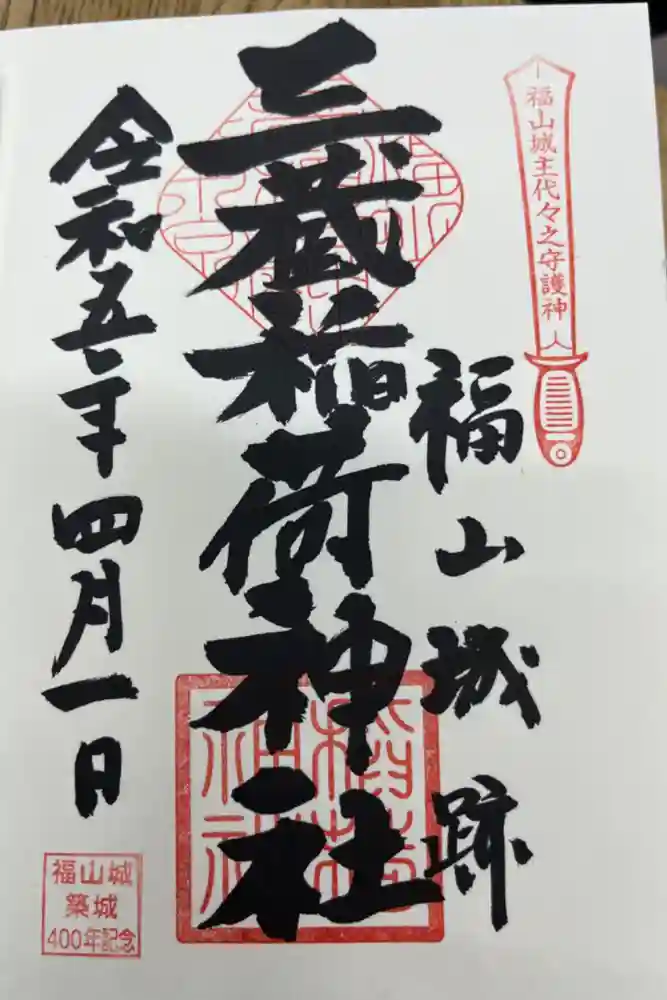 福山城主代々之守護神
福山城跡
三蔵稲荷神社
令和五年四月一日
稲荷
神社
福山城
築城
400年記念